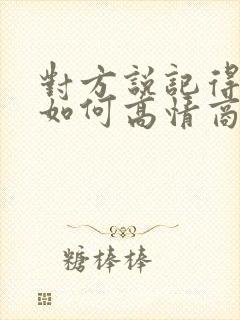 對方說記得
如何高情商
糖棒棒